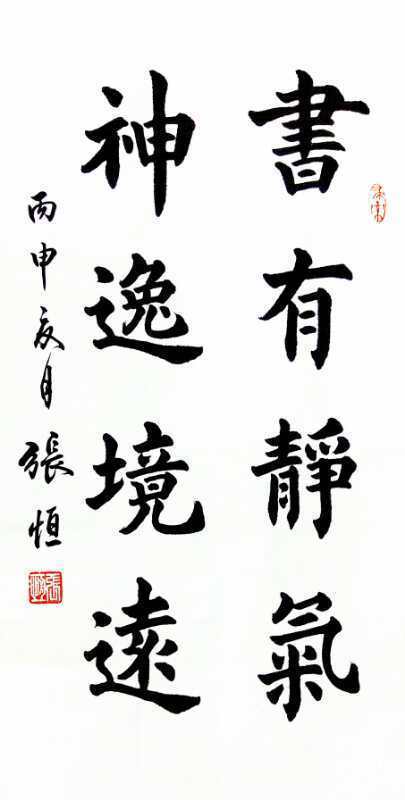 書有靜氣
神逸境遠
丙申夏月張恒